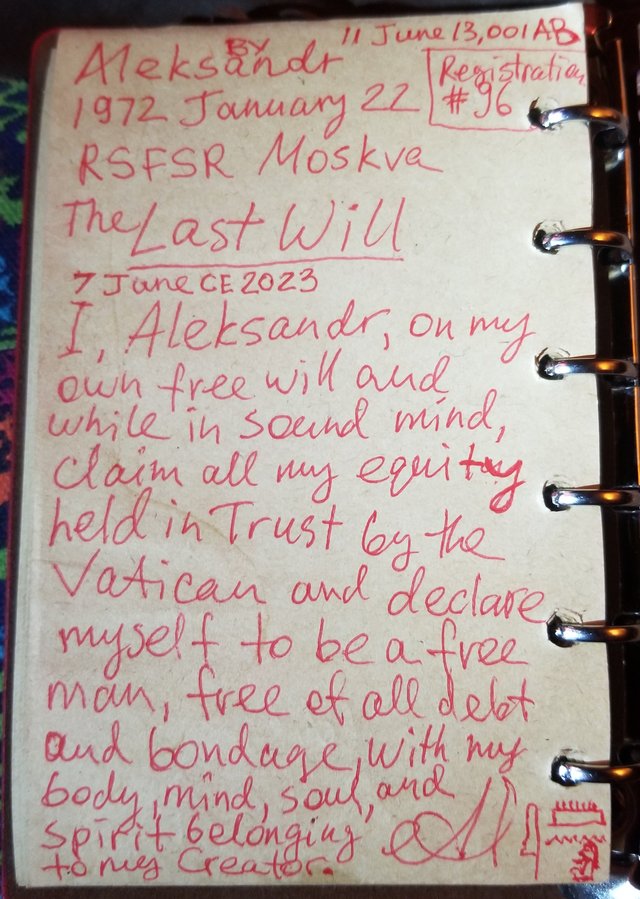 BY 11 June 13,001 AB
Aleksandr Registration
1972 January 22 #96
RSFSR Moskva
The Last Will
7 June CE 2023
I, Aleksandr, on my
own free will and
while in sound mind,
claim all my equity
held in Trust by the
Vatican and declare
myself to be a free
man, free of all debt
and bondage, with my
body, mind, soul, and
spirit belonging
to my Creator.